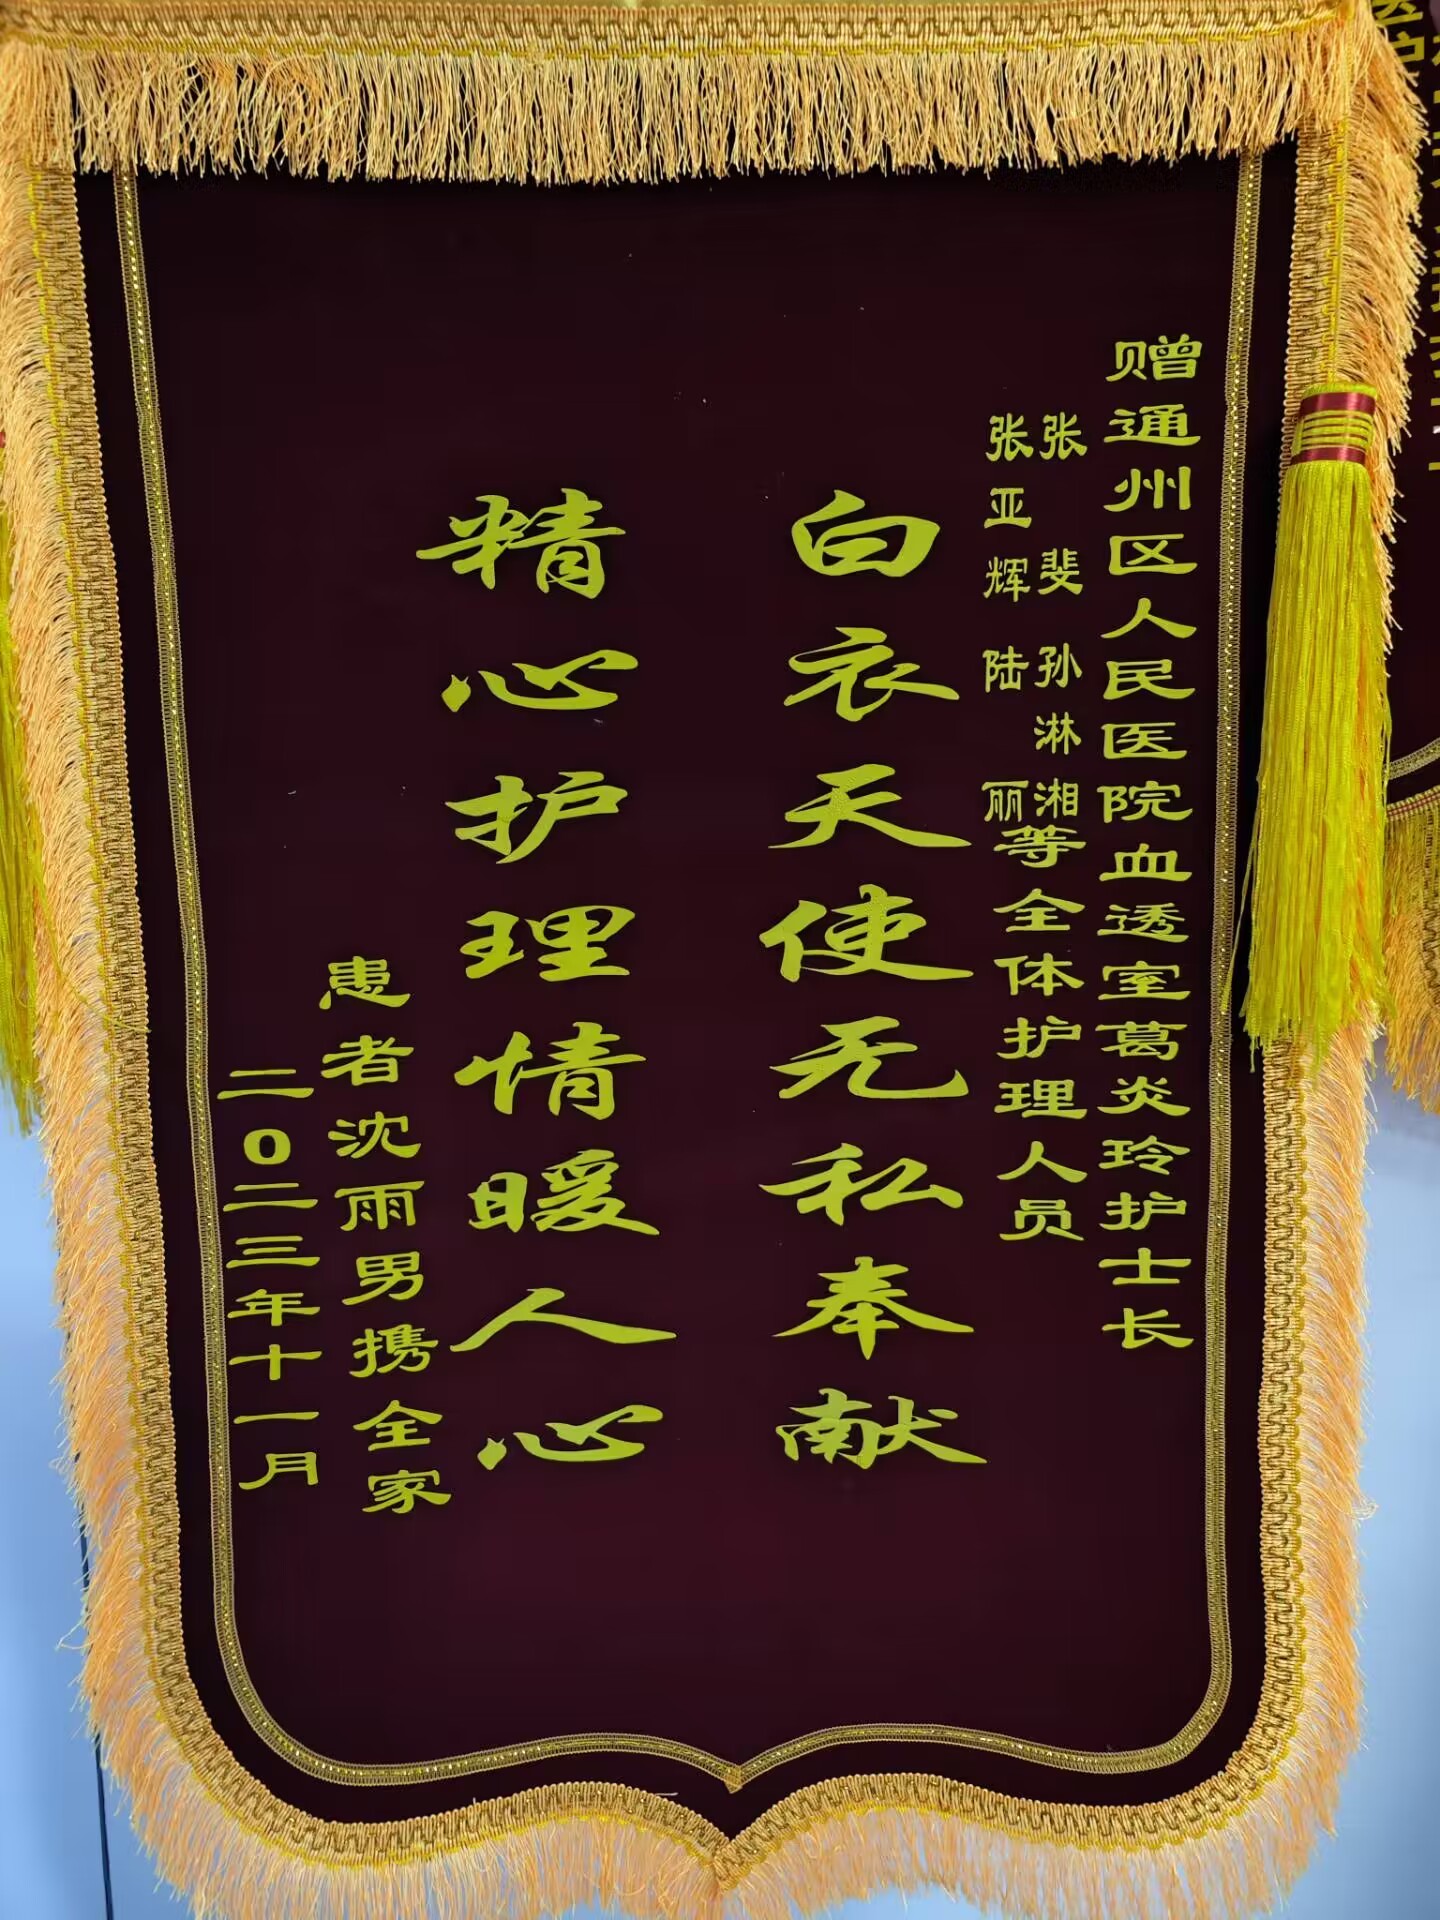 赠通州区人民医院血透室葛炎玲护士长
张斐 孙淋湘
张亚辉 陆丽
等全体护理人员
白衣天使无私奉献
精心护理情暖人心
患者沈雨男携全家
二0二三年十一月